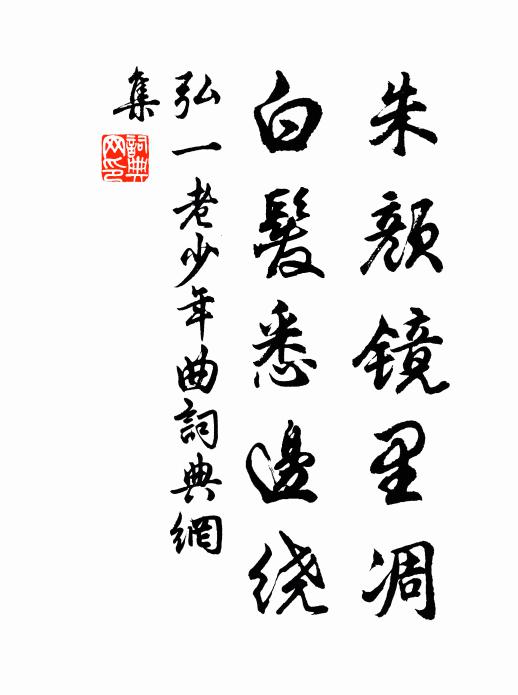 朱颜镜里凋
白髮悉邊绕
弘一老少年曲詞典網
集
詞典网印